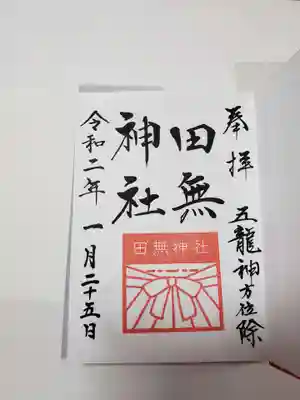 奉拝 五龍神方位除
田無
神社
田無神社
令和二年 一月二十五日